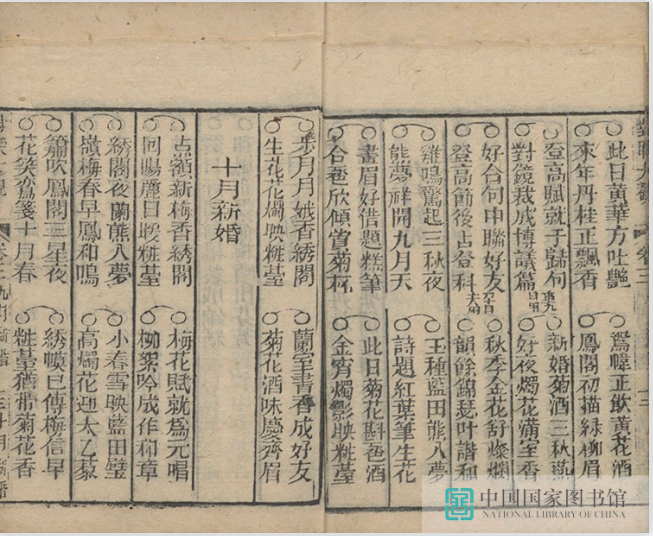 對聯大觀 卷三
此日黃華方吐艷 鴛幃正飲黃花酒
來年丹桂正飄香 鳳閣初描綠柳眉
登高賦就于歸句 新婚菊酒三秋燕
對鏡裁成博議篇 重九日婚 好夜燭花滿室香
好合句申聯好友 秋季金花舒燦爛
登高節後占登科 韻餘錦瑟叶諧和
雞鳴驚起三秋夜 玉種藍田熊入夢
熊夢祥開九月天 詩題紅葉筆生花
畫眉好借題糕筆 此日菊花斟巹酒
合巹欣傾首菊杯 金宵燭影映粧臺
步月月娥香綉閣 蘭室書香成好友
生花花燭映粧臺 菊花酒味慶齊眉
十月新婚
点額新梅香綉閣 梅花賦就為元唱
回陽麗日暖粧臺 柳絮吟成作和章
綉閣夜闌熊入夢 小春雪映藍田璧
嶺梅春早鳳和鳴 高燭花迎太乙藜
簫吹鳳閣三星夜 綉幙已傳梅信早
花笑鸞箋十月春 粧臺猶帶菊花香
中国国家图书馆
NATIONAL LIBRARY OF CHINA